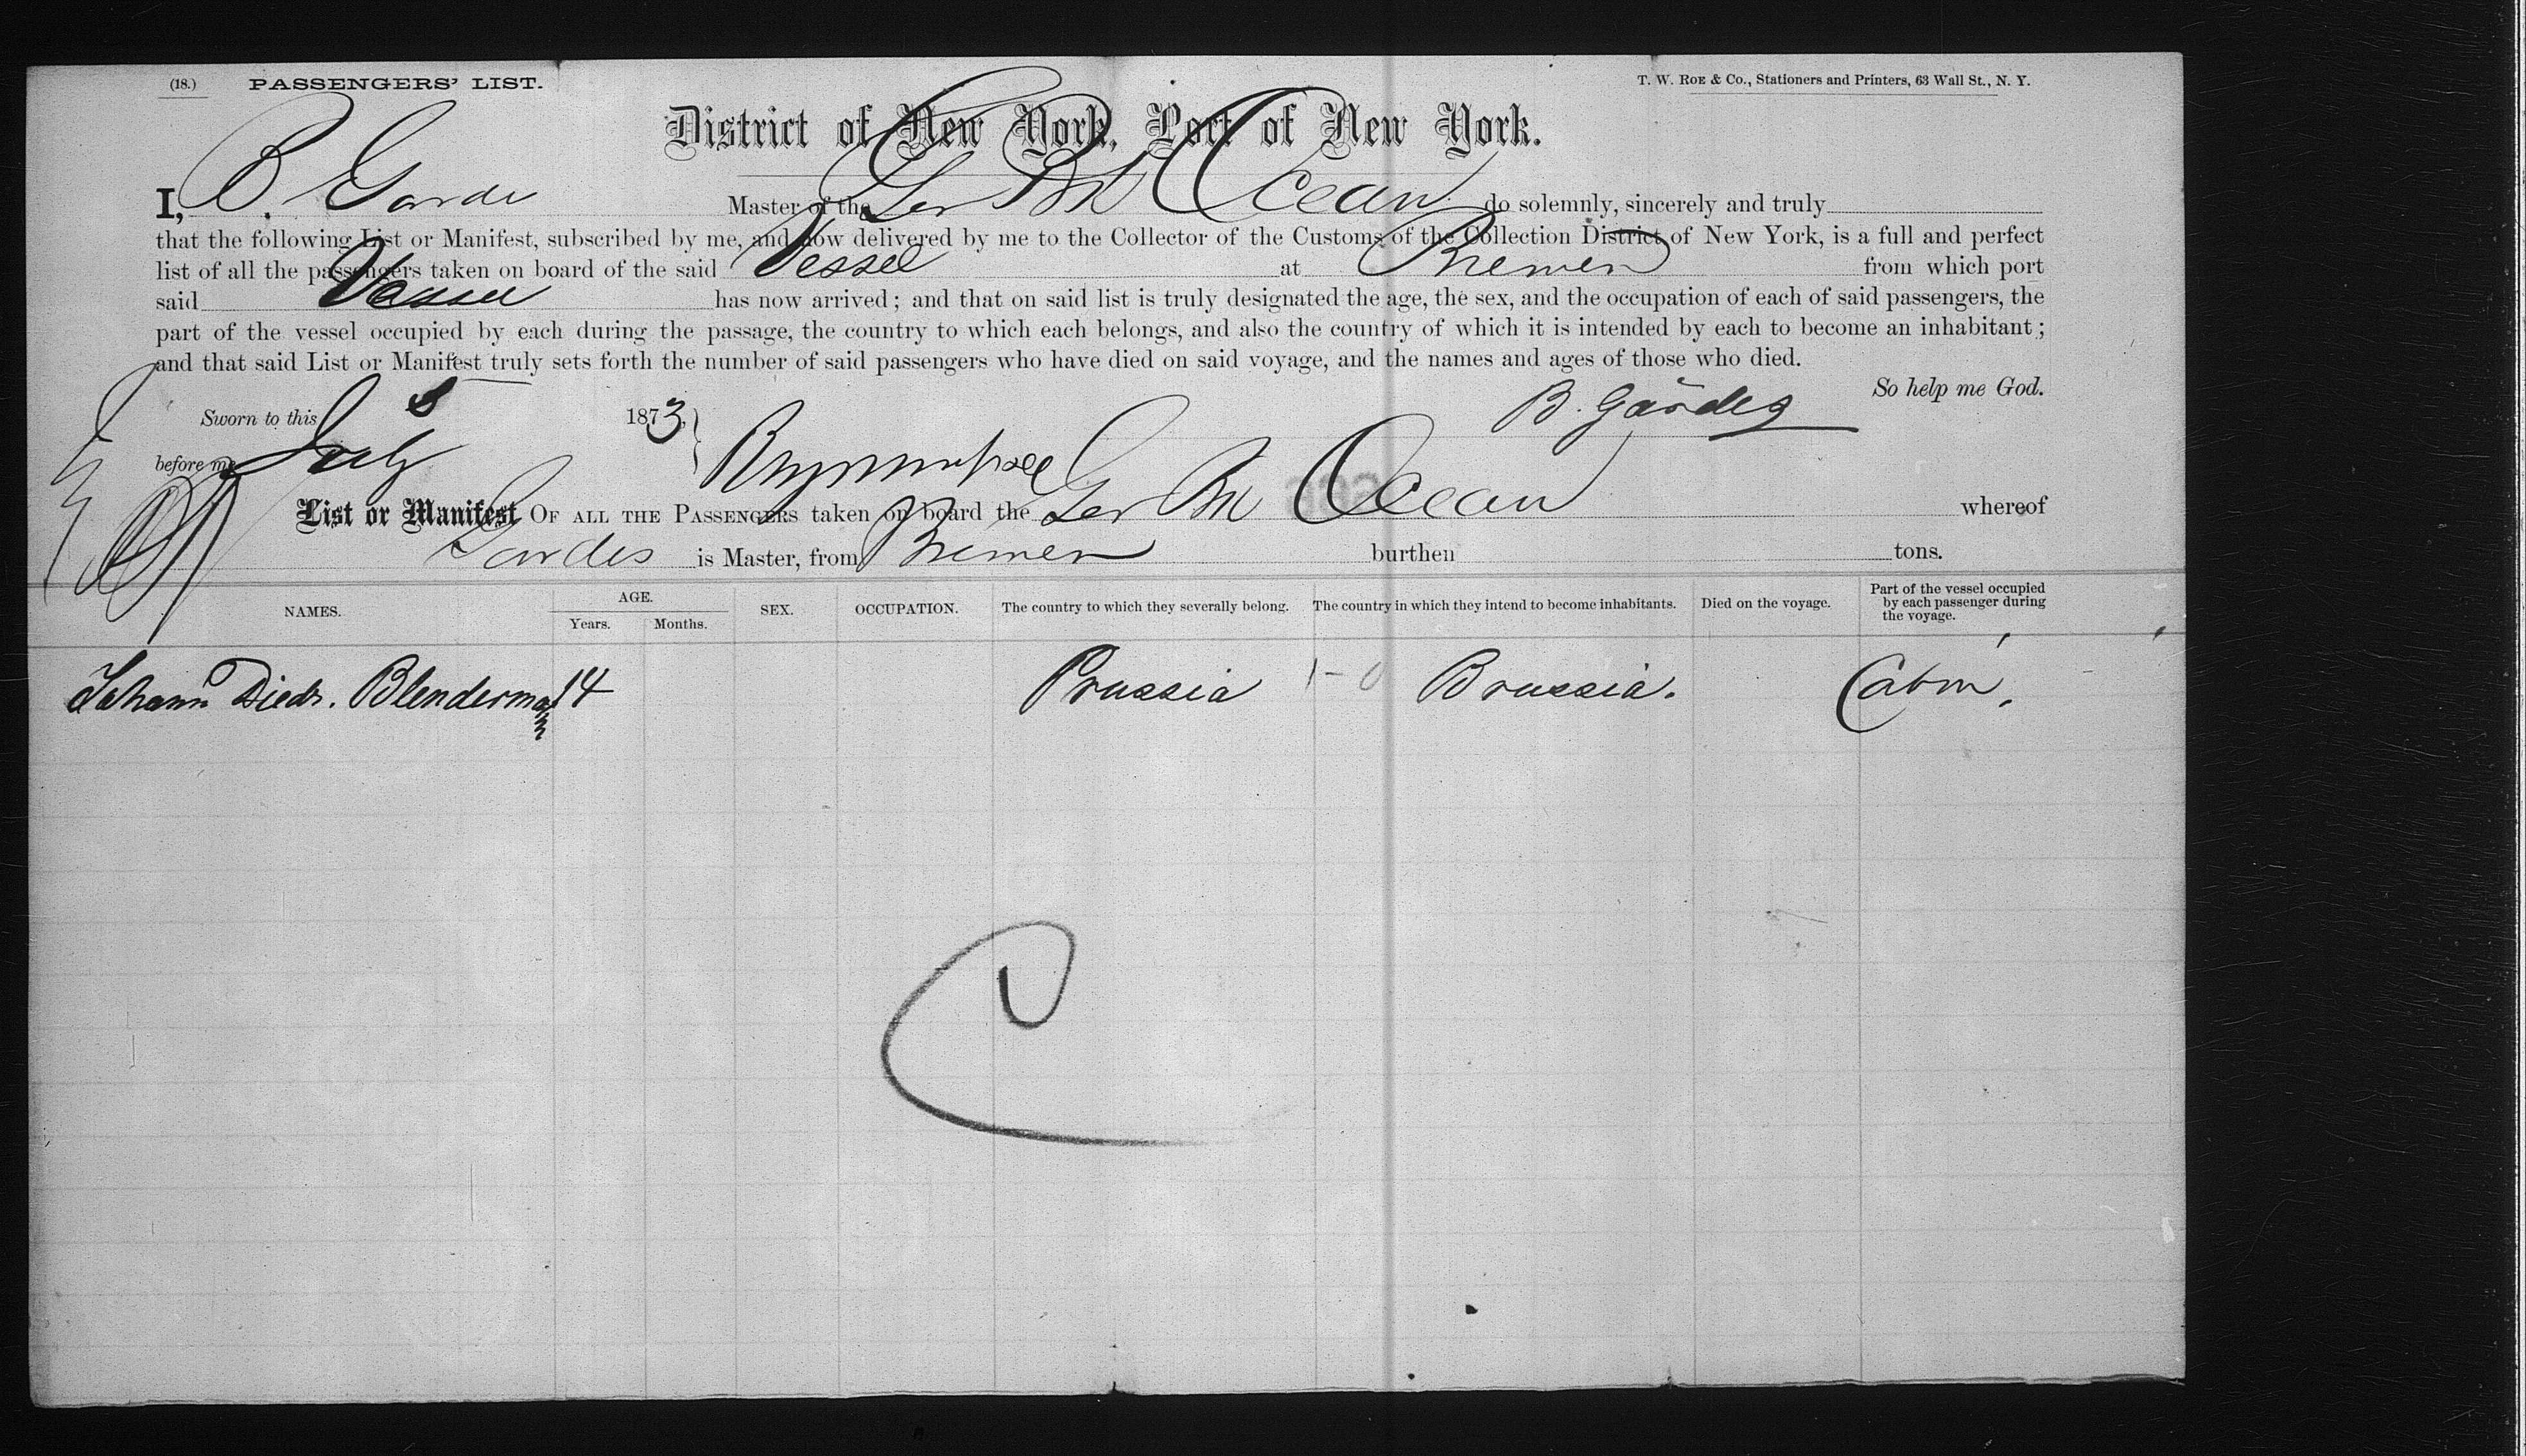 (18.) PASSENGERS' LIST. T. W. ROE & Co., Stationers and Printers, 63 Wall St., N. Y.
District of New York, Port of New York.
I, B. Garde Master of the Ger Bk Ocean do solemnly, sincerely and truly
that the following List or Manifest, subscribed by me, and now delivered by me to the Collector of the Customs of the Collection District of New York, is a full and perfect
list of all the passengers taken on board of the said Vessel at Bremen from which port
said Vessel has now arrived; and that on said list is truly designated the age, the sex, and the occupation of each of said passengers, the
part of the vessel occupied by each during the passage, the country to which each belongs, and also the country of which it is intended by each to become an inhabitant;
and that said List or Manifest truly sets forth the number of said passengers who have died on said voyage, and the names and ages of those who died.
So help me God.
Sworn to this 5 1873, B. Gardes
before me July
List or Manifest OF ALL THE PASSENGERS taken on board the Ger Bk Ocean whereof
Gardes is Master, from Bremen burthen tons.
NAMES. AGE. Years. Months. SEX. OCCUPATION. The country to which they severally belong. The country in which they intend to become inhabitants. Died on the voyage. Part of the vessel occupied by each passenger during the voyage.
Johann Diedr. Blendermann 14 Prussia 1-0 Brussia. Cabin.